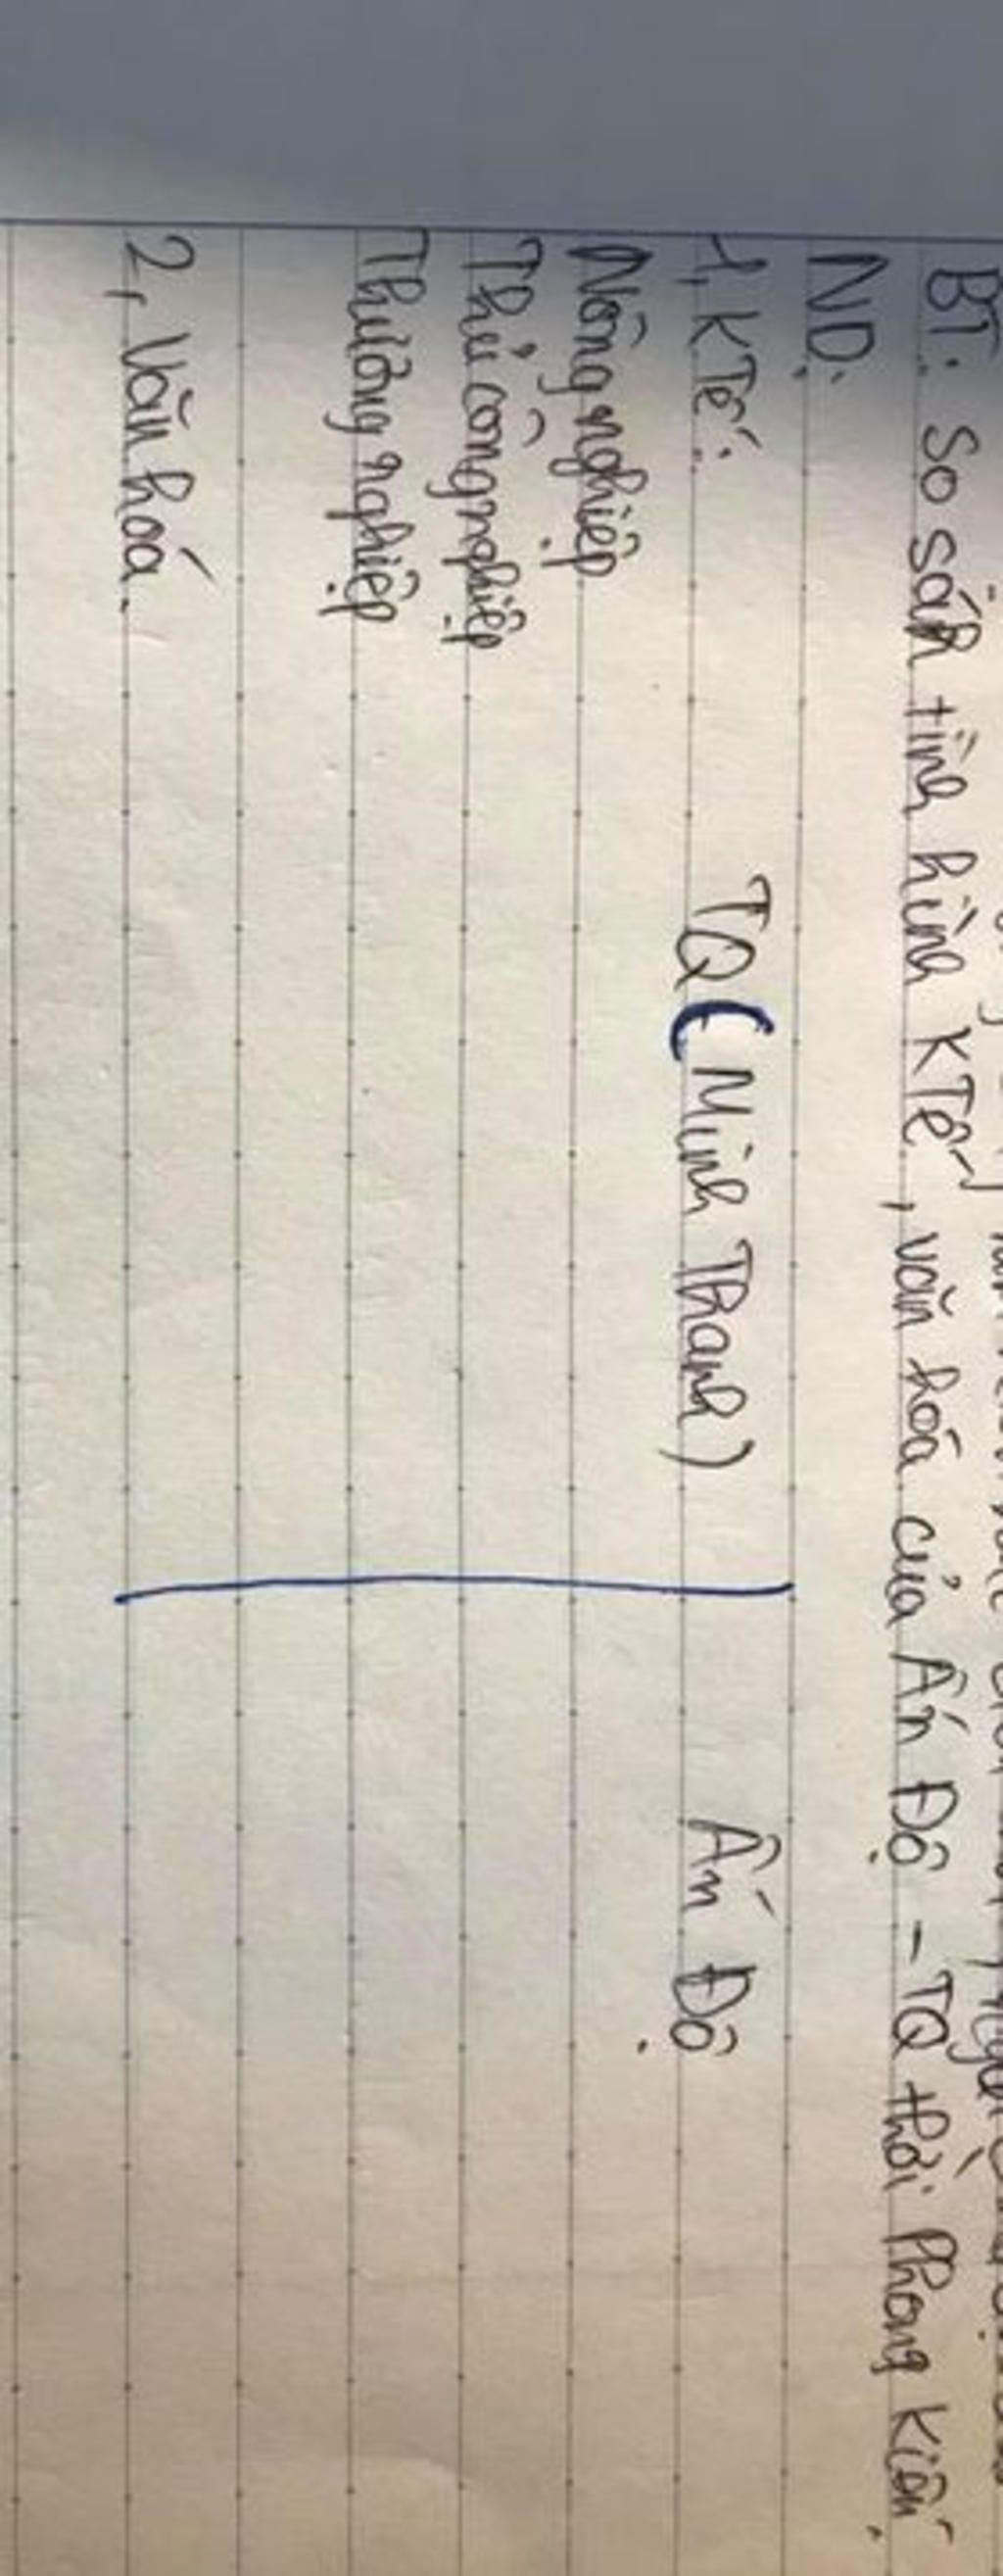 BT: So sánh tình hình KTế, văn hoá của Ấn Độ - TQ thời Phong Kiến.
ND:
1, KTế: TQ ( Minh Thanh ) Ấn Độ
Nông nghiệp
Thủ công nghiệp
Thương nghiệp
2, Văn hoá.